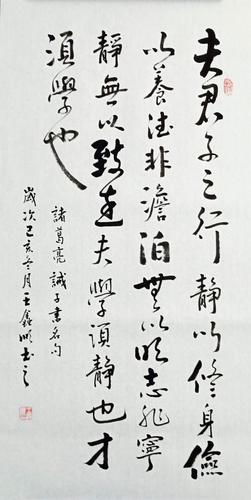 夫君子之行靜以修身儉
以養德非澹泊無以明志非寧
靜無以致遠夫學須靜也才
須學也
諸葛亮誡子書名句
歲次己亥冬月王鑫明書之